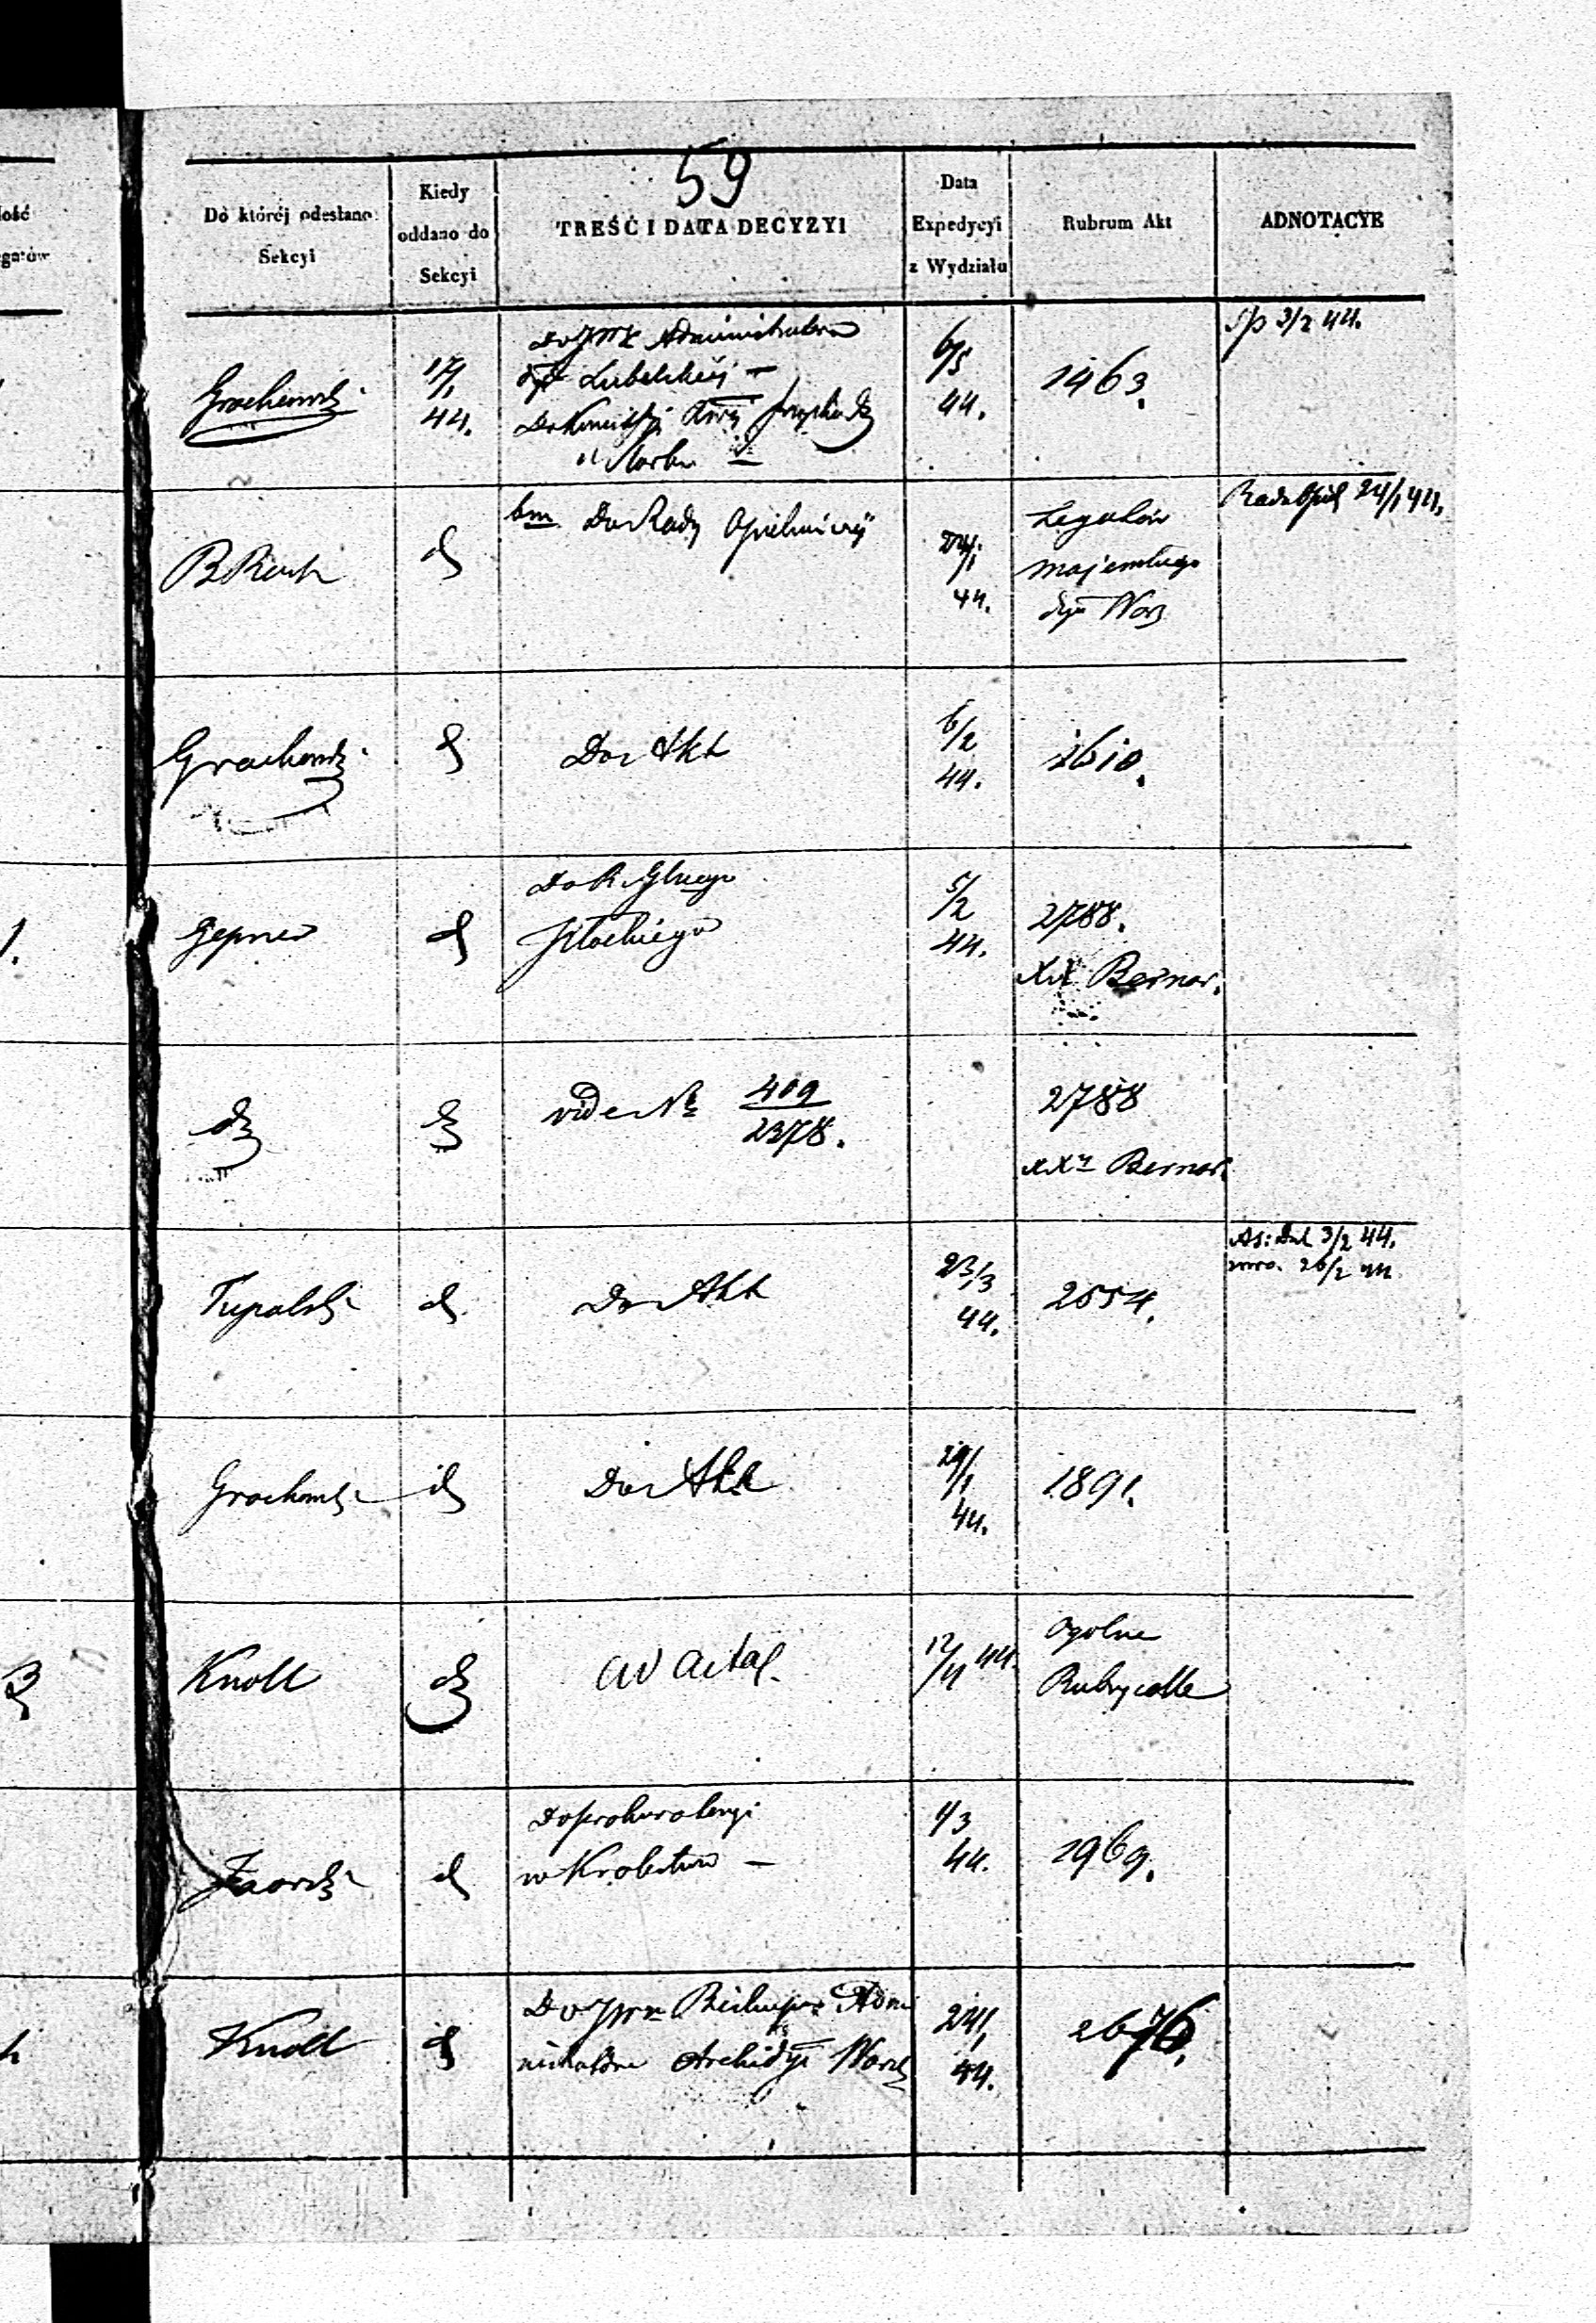 59
Do któréj odesłano Sekcyi
Kiedy oddano do Sekcyi
TREŚĆ I DATA DECYZYI
Data Expedycyi z Wydziału
Rubrum Akt
ADNOTACYE
Grochowski
17/1
44.
Do JMX Administratora
dyi Lubelskiéj —
Do Kommissyi
Skarbu —
6/5
44.
1463.
3/2 44.
d
bm Do Rady Opiekuńczéj
24/1
44.
Legatów
majewskiego
dyi Warsz
Rada Opiek 24/1 44.
Grochowski
d
Do Akt
6/2
44.
1610.
Gepner
d
Do R. Glnego
Płockiego
5/2
44.
2788.
XX Bernar.
d
d
vide Nr 409
2378.
2788
XXy Bernar.
Tupalski
d
Do Akt
23/3
44.
2554.
3/2 44.
26/2 44
Grochowski
d
Do Akt
29/1
44.
1891.
Knoll
d
ad acta
12/4 44.
Ogolne
Rubrycelle
Jaworski
d
Do prokuratoryi
w Królestwie —
1/3
44.
1969.
Knoll
d
Do JW Biskupa Admi
nistratora Archidyi Warsz
24/1
44.
2676.